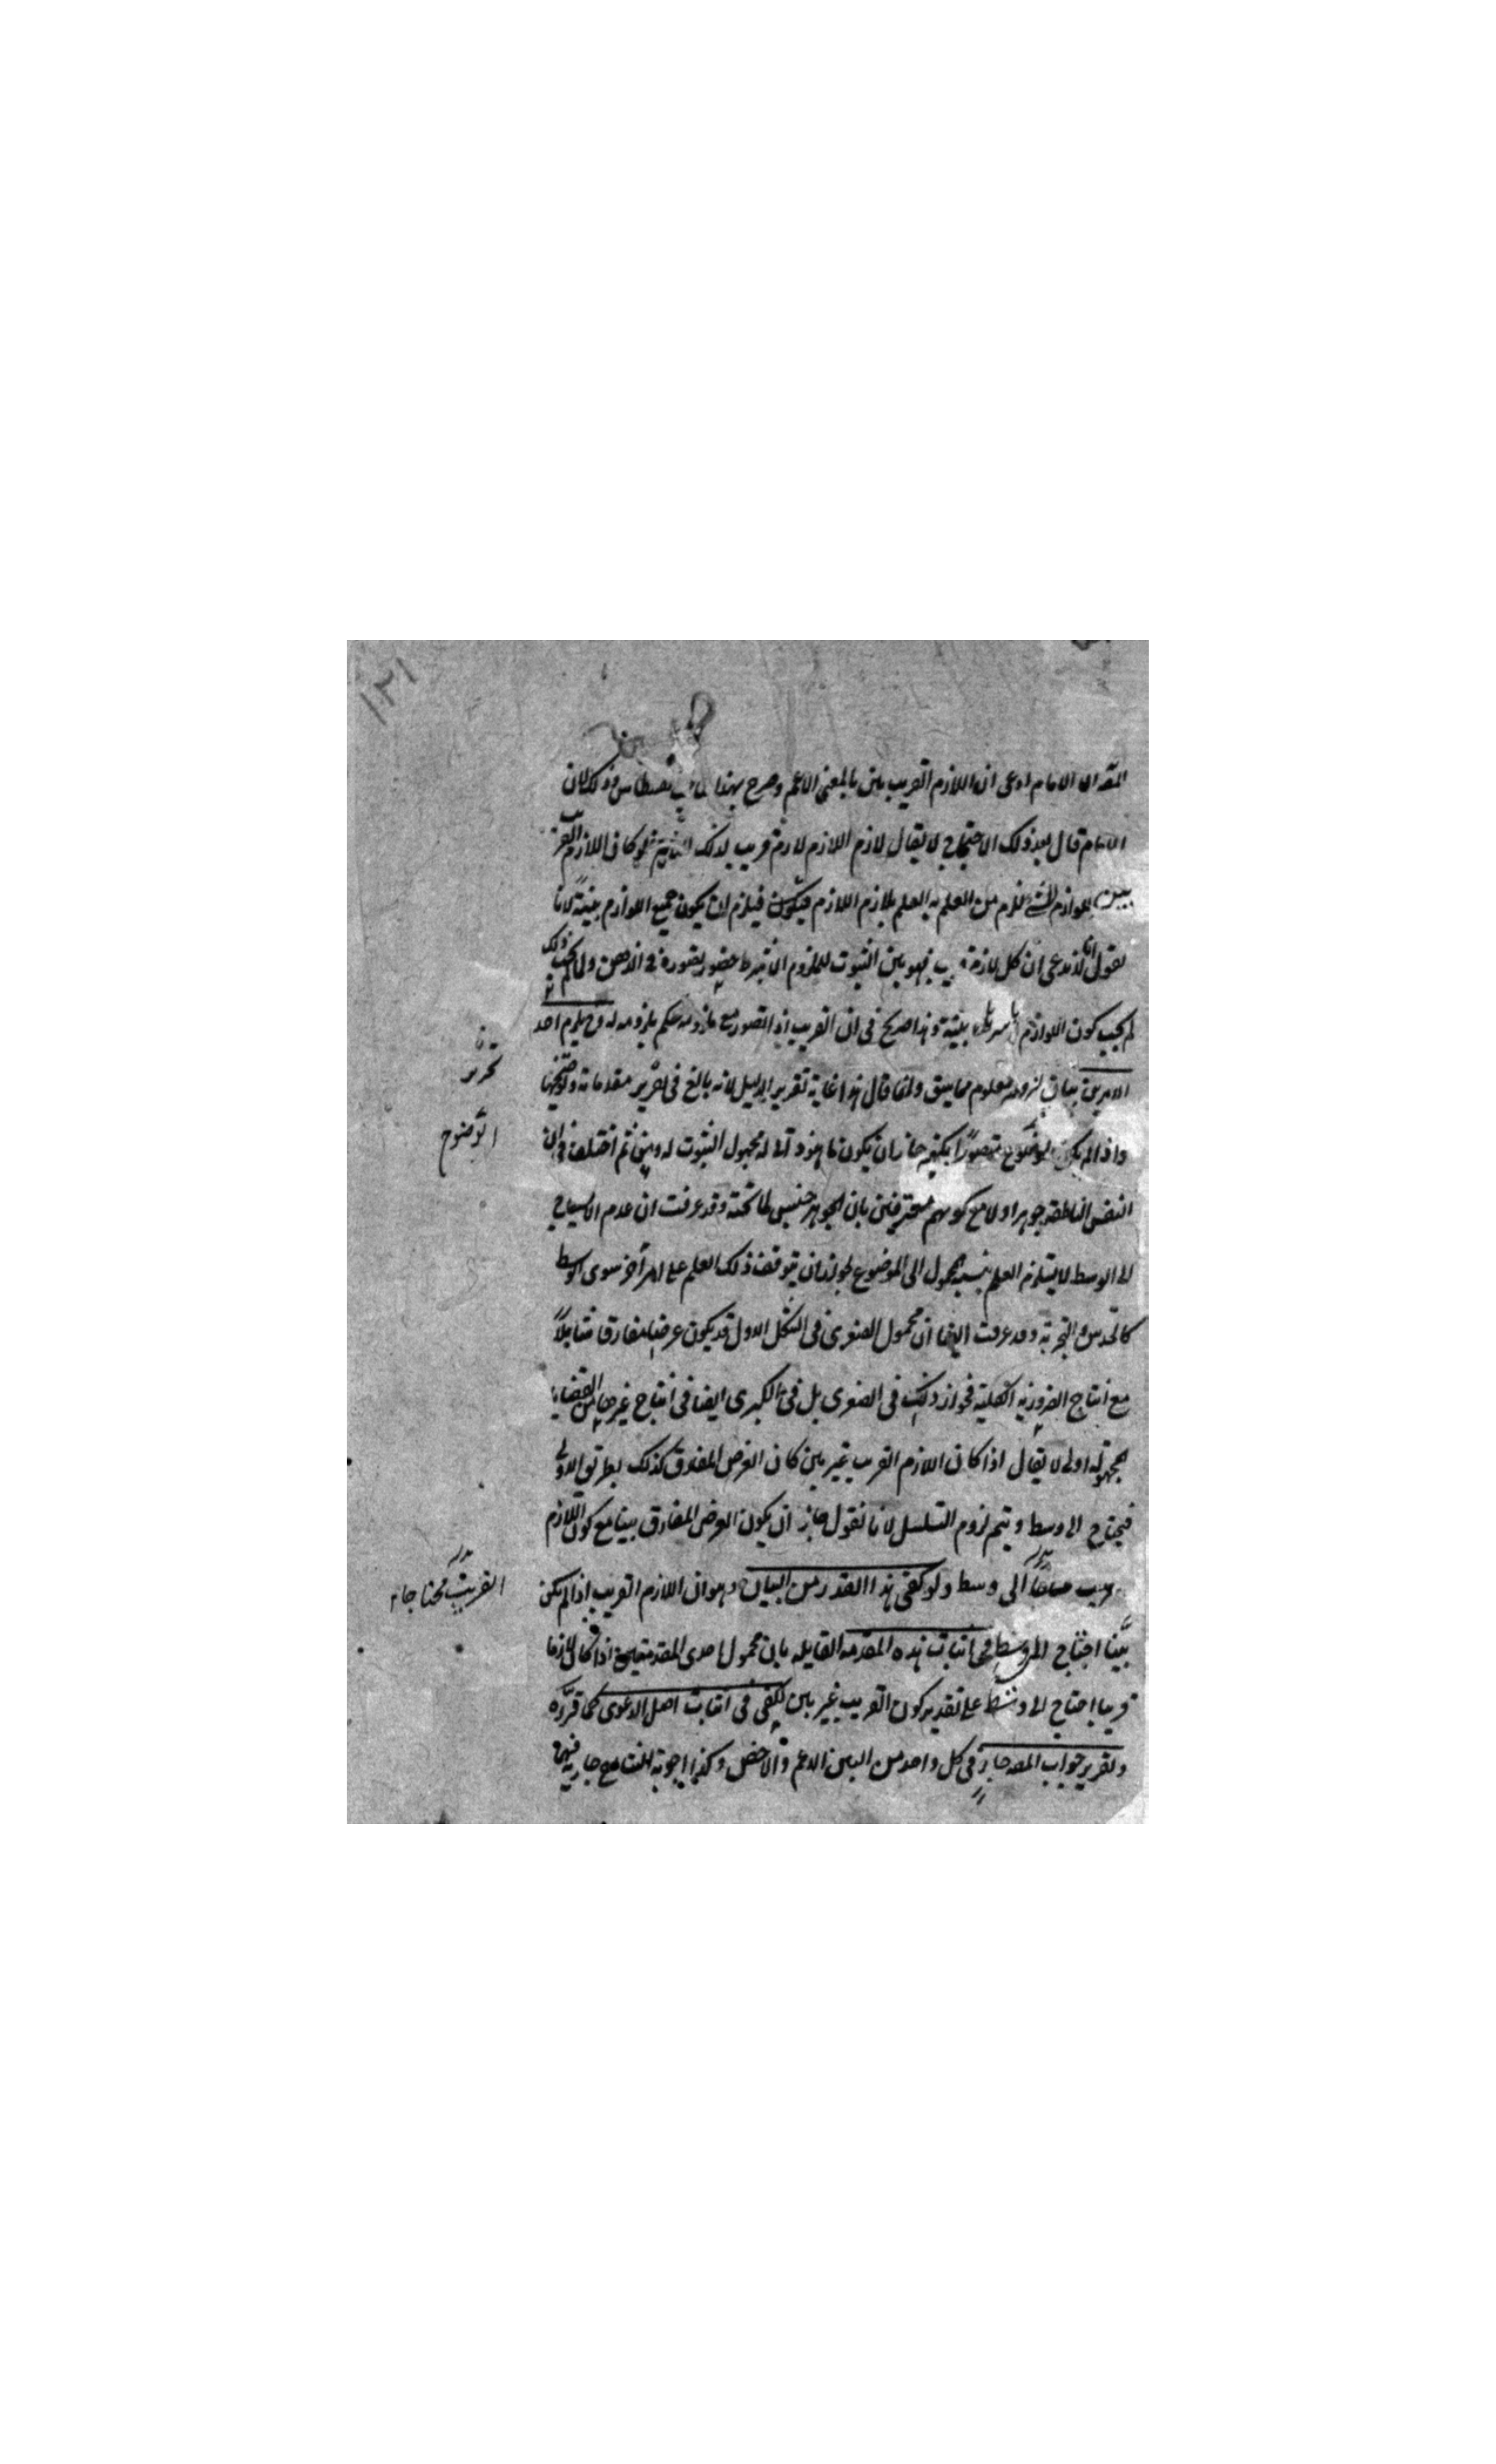 ١٢١
الامام ادعى ان اللازم القريب بين بالمعنى الاعم وصرح بهذا وذلك لان
الامام قال بعد ذلك الاحتجاج لا يقال لازم اللازم لازم قريب لذلك فلو كان اللازم القريب
بين للوازم الشئ لزم من العلم به العلم بلازم اللازم فيلزم ان يكون جميع اللوازم بينة لانا
نقول انا لا ندعى ان كل لازم قريب فهو بين الثبوت للملزوم الا بشرط حضور تصوره فى الذهن ولما لم يجب ذلك
لم يجب كون اللوازم باسرها بينة وهذا صريح فى ان القريب اذا تصور مع ملزومه حكم بلزومه له وح يلزم احد
الامرين معلوم مما سبق وانما قال هذا غاية تقرير الدليل لانه بالغ فى تحرير مقدماته وتوضيحها
تحرير
واذا لم يكن الموضوع متصورا بكنهه جاز ان يكون ما هو ذاتى له مجهول الثبوت له ومن ثم اختلف فى ان
الموضوع
النفس الناطقة جوهر او لا مع كونهم معترفين بان الجوهر جنس لما تحته وقد عرفت ان عدم الاحتياج
الى الوسط لا يستلزم العلم بنسبة المحمول الى الموضوع لجواز ان يتوقف ذلك العلم على امر آخر سوى الوسط
كالحدس والتجربة وقد عرفت ايضا ان محمول الصغرى فى الشكل الاول قد يكون عرضا مفارقا شاملا
مع انتاج الضرورية الكلية فجواز ذلك فى الصغرى بل فى الكبرى ايضا فى انتاج غيرها من القضايا
المجهولة اولى لا يقال اذا كان اللازم القريب غير بين كان العرض المفارق كذلك بطريق الاولى
فيحتاج الى وسط ويتم لزوم التسلسل لانا نقول جاز ان يكون العرض المفارق بينا مع كون اللازم
القريب محتاجا الى وسط ولو كفى هذا القدر من البيان وهو ان اللازم القريب اذا لم يكن
القريب محتاجا
بينا احتاج الى وسط فى اثبات هذه المقدمة القايلة بان محمول احدى المقدمتين اذا كان لازما
قريبا احتاج الى وسط على تقدير كون القريب غير بين لكفى فى اثبات اصل الدعوى كما قرره
وتقرير جواب المصـ جار فى كل واحد من البين الاعم والاخص وكذا اجوبة جارية فيهما